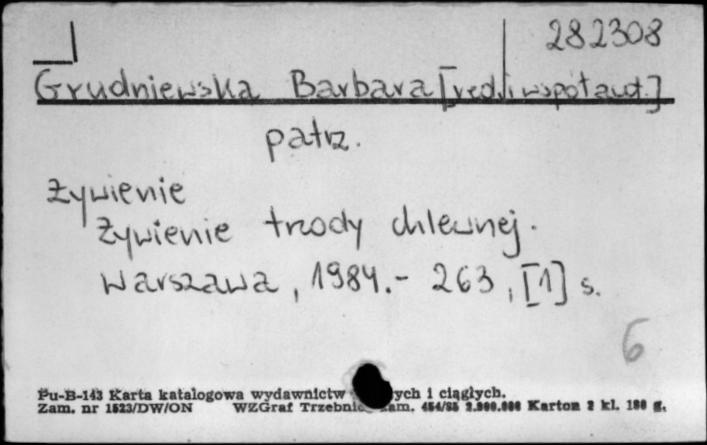 282308
Grudniewska Barbara [red. i współaut.]
patrz.
Żywienie
Żywienie trzody chlewnej.
Warszawa, 1984.- 263, [1] s.
6
Pu-B-143 Karta katalogowa wydawnictw ych i ciągłych.
Zam. nr 1523/DW/ON WZGraf Trzebnica zam. 454/85 2.000.000 Karton 2 kl. 180 g.